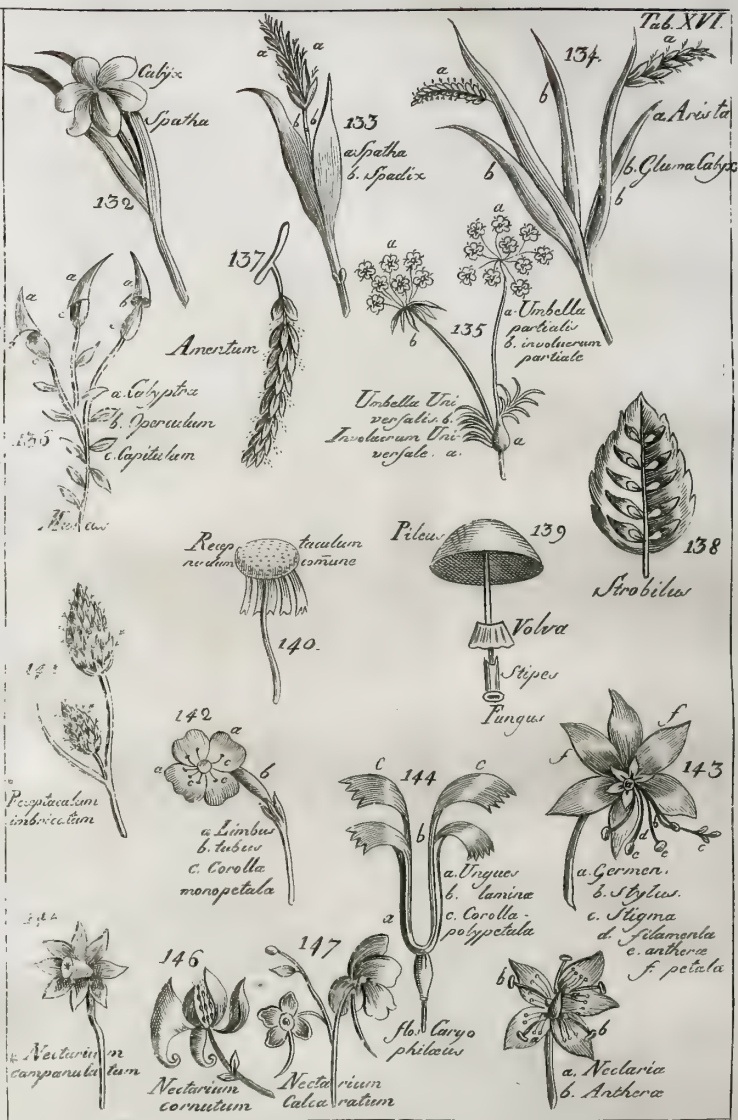 Tab. XVI.
Calyx
Spatha
132
a a
b b
133
a. Spatha
b. Spadix
a
134.
a
b
b
a. Arista
b. Gluma Calyx
b
a a a
b c b
c
a. Calyptra
b. Operculum
c. Capitulum
136
Muscus
137
Amentum
a
a
b
135
a. Umbella
partialis
b. involucrum
partiale
Umbella Uni
versalis. b.
Involucrum Uni-
versale. a.
a
138
Strobilus
Recep taculum
nudum com̄une
140.
Pileus
139
Volva
Stipes
Fungus
Receptaculum
imbricatum
142
a
a
c c
c c
b
a Limbus
b. tubus
c. Corolla
monopetala
c 144 c
b
a
a. Ungues
b. laminæ
c. Corolla-
polypetala
flos Caryo
philæus
f f
143
d b
e e c
a. Germen.
b. Stylus.
c. Stigma
d. filamenta
e. antheræ
f. petala
Nectarium
campanulatum
146
Nectarium
cornutum
147
Nectarium
Calcaratum
b
a b
a. Nectaria
b. Antheræ